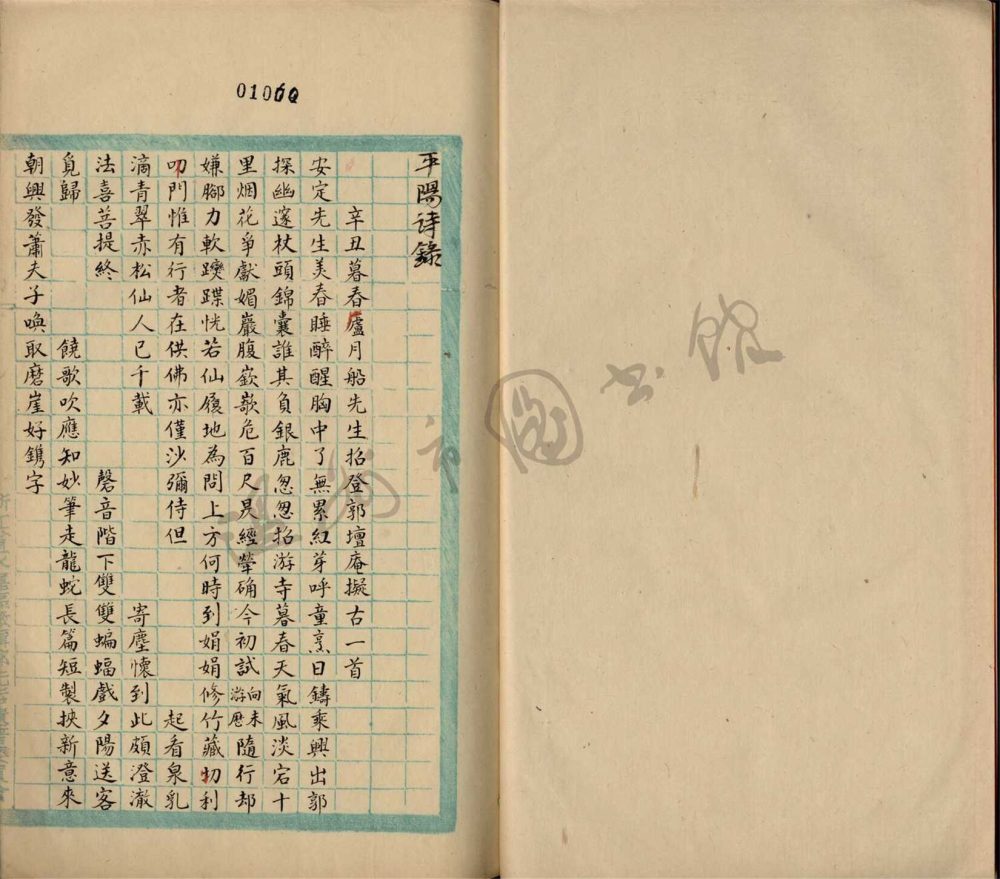 01060
平陽诗錄
辛丑暮春廬月船先生招登郭壇庵擬古一首
安定先生美春睡醉醒胸中了無累紅芽呼童烹日鑄乘興出郭
探幽邃杖頭錦囊誰其負銀鹿忽忽招游寺暮春天氣風淡宕十
里烟花爭獻媚巖腹嶔欹危百尺昃經犖确今初試向未游歷隨行却
嫌腳力軟躞蹀恍若仙履地為問上方何時到娟娟修竹藏初利
叩門惟有行者在供佛亦僅沙彌侍但 起看泉乳
滴青翠赤松仙人已千載 寄塵懷到此頗澄澈
法喜菩提終 磬音階下雙雙蝙蝠戲夕陽送客
覓歸 饒歌吹應知妙筆走龍蛇長篇短製挾新意來
朝興發蕭夫子喚取磨崖好鐫字
溫州市圖書館